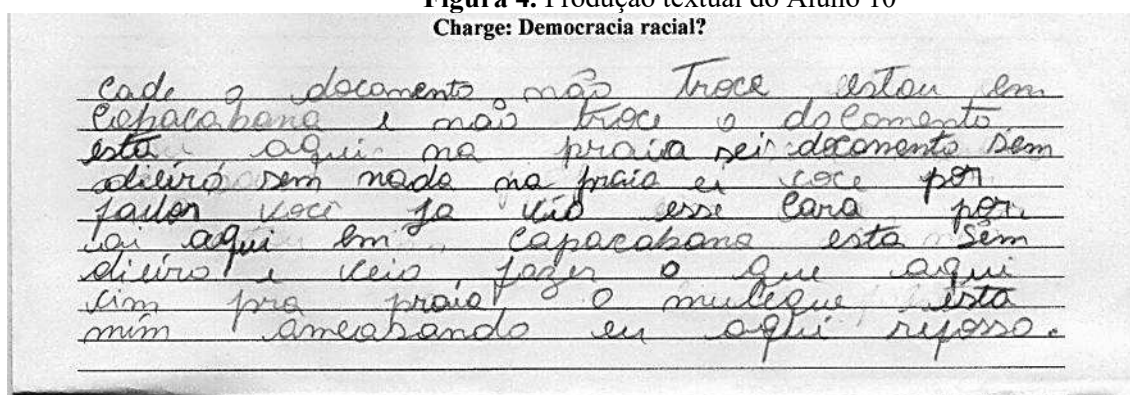 Figura 4. Produção textual do Aluno 10
Charge: Democracia racial?
Cade o documento não troce estou em
Copacabana e não troce o docomento
esta aqui na praia sei docomento sem
sem nada na praia ei voce por
favor você ja vio esse cara por
ai aqui em Capacabana esta sem
dieiro e veio fazer o que aqui
vim pra praia o muleque esta
mim ameasando eu aqui reposso.